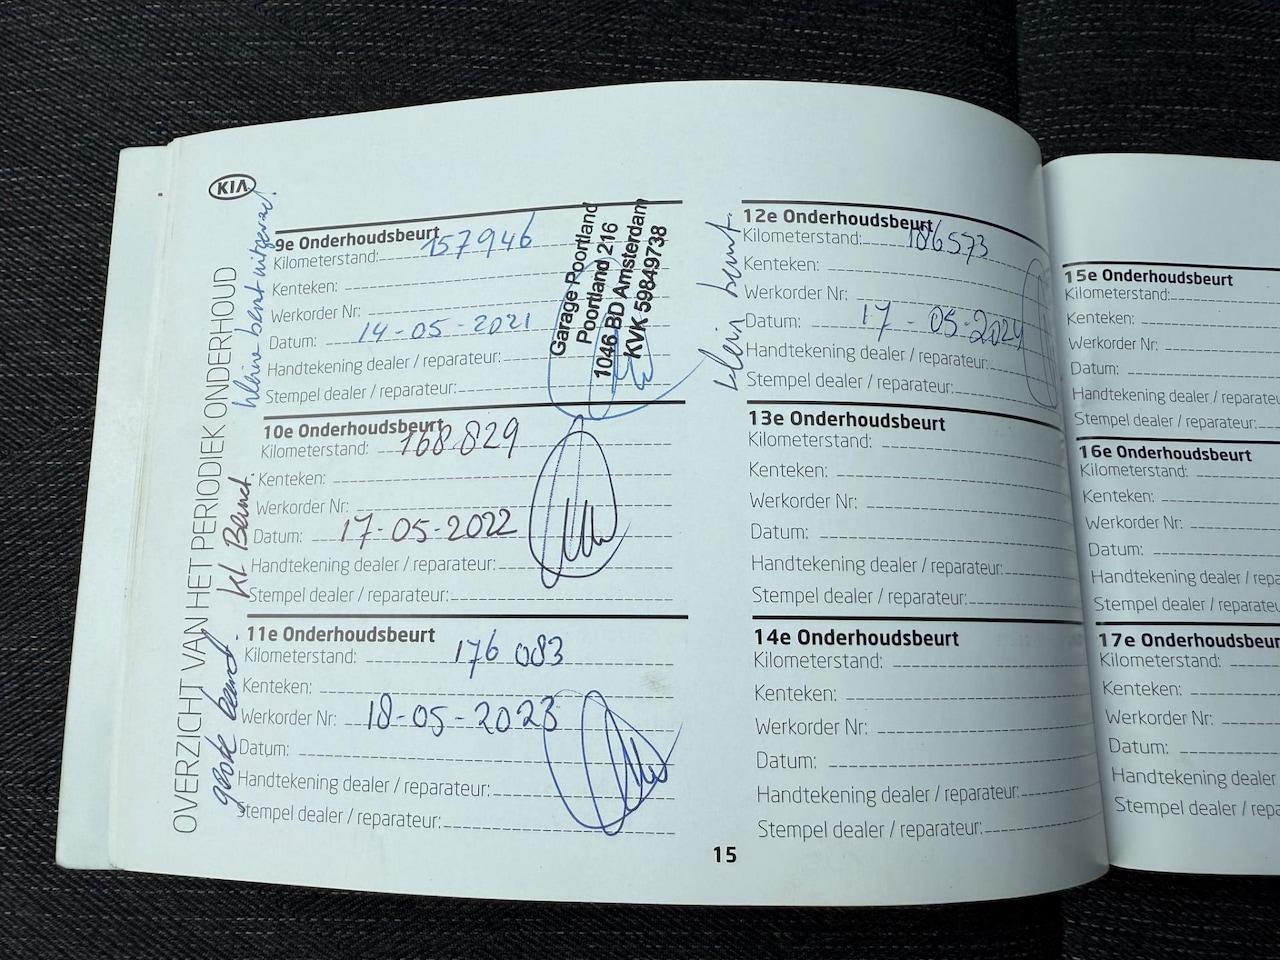 KIA
OVERZICHT VAN HET PERIODIEK ONDERHOUD
kleine beurt uitgevoerd.
9e Onderhoudsbeurt
Kilometerstand: 157946
Kenteken:
Werkorder Nr:
Datum: 14-05-2021
Handtekening dealer / reparateur:
Stempel dealer / reparateur:
Garage Poortland
Poortland 216
1046 BD Amsterdam
KVK 59849738
kl Beurt.
10e Onderhoudsbeurt
Kilometerstand: 168829
Kenteken:
Werkorder Nr:
Datum: 17-05-2022
Handtekening dealer / reparateur:
Stempel dealer / reparateur:
grote beurt.
11e Onderhoudsbeurt
Kilometerstand: 176083
Kenteken:
Werkorder Nr: 18-05-2023
Datum:
Handtekening dealer / reparateur:
Stempel dealer / reparateur:
klein beurt.
12e Onderhoudsbeurt
Kilometerstand: 186573
Kenteken:
Werkorder Nr:
Datum: 17-05-2024
Handtekening dealer / reparateur:
Stempel dealer / reparateur:
13e Onderhoudsbeurt
Kilometerstand:
Kenteken:
Werkorder Nr:
Datum:
Handtekening dealer / reparateur:
Stempel dealer / reparateur:
14e Onderhoudsbeurt
Kilometerstand:
Kenteken:
Werkorder Nr:
Datum:
Handtekening dealer / reparateur:
Stempel dealer / reparateur:
15
15e Onderhoudsbeurt
Kilometerstand:
Kenteken:
Werkorder Nr:
Datum:
Handtekening dealer / reparateu
Stempel dealer / reparateur:
16e Onderhoudsbeurt
Kilometerstand:
Kenteken:
Werkorder Nr:
Datum:
Handtekening dealer / repa
Stempel dealer / reparateu
17e Onderhoudsbeur
Kilometerstand:
Kenteken:
Werkorder Nr:
Datum:
Handtekening dealer
Stempel dealer / repa